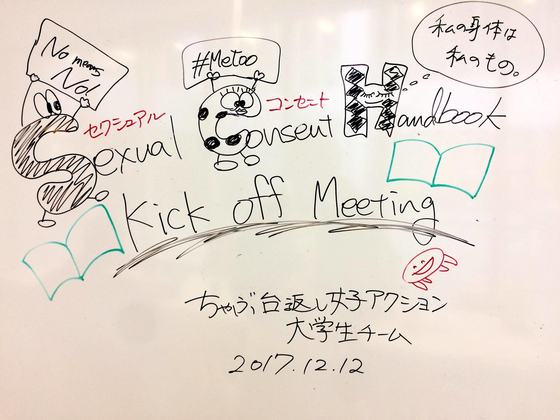 No means No!
#Metoo
私の身体は
私のもの。
セクシュアル
コンセント
Sexual Consent Handbook
Kick off Meeting
ちゃぶ台返し女子アクション
大学生チーム
2017.12.12